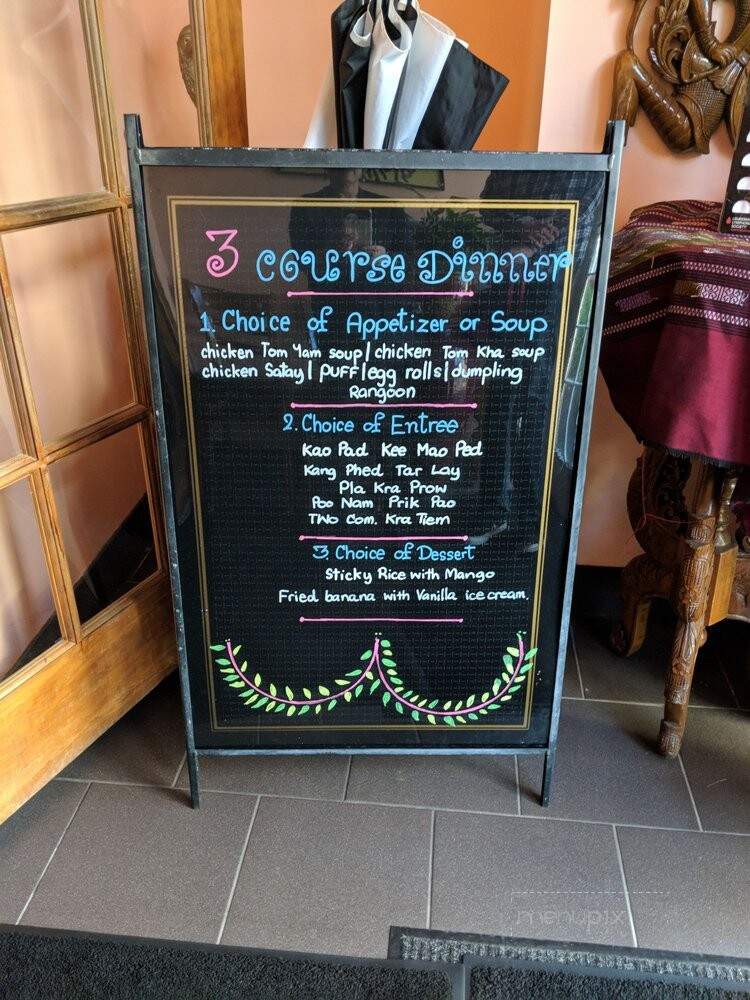 3 Course Dinner
1. Choice of Appetizer or Soup
chicken Tom Yam soup | chicken Tom Kha soup
chicken Satay | PUFF | egg rolls | dumpling
Rangoon
2. Choice of Entree
Kao Pad Kee Mao Ped
Kang Phed Tar Lay
Pla Kra Prow
Poo Nam Prik Pao
TWo Com. Kra Tiem
3. Choice of Dessert
Sticky Rice with Mango
Fried banana with Vanilla ice cream.
menupix